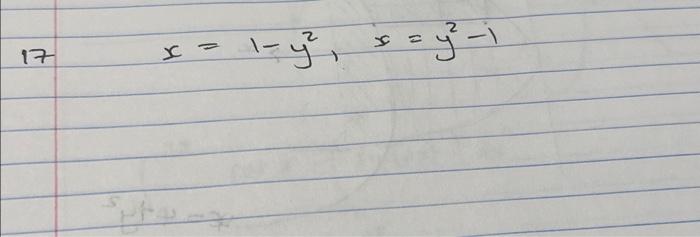 17 x = 1 - y², x = y² - 1